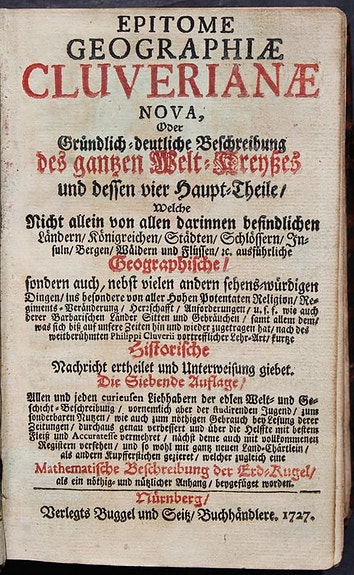 EPITOME
GEOGRAPHIÆ
CLUVERIANÆ
NOVA,
Oder
Gründlich-deutliche Beschreibung
des gantzen Welt-Kreyßes
und dessen vier Haupt-Theile/
Welche
Nicht allein von allen darinnen befindlichen
Ländern/ Königreichen/ Städten/ Schlössern/ In-
suln/ Bergen/ Wäldern und Flüssen/ ꝛc. ausführliche
Geographische/
sondern auch/ nebst vielen andern sehens-würdigen
Dingen/ ins besondere von aller Hohen Potentaten Religion/ Re-
giments-Veränderung/ Herrschafft/ Anforderungen/ u. s. f. wie auch
derer Barbarischen Länder Sitten und Gebräuchen/ samt allem dem/
was sich biß auf unsere Zeiten hin und wieder zugetragen hat/ nach des
weitberühmten Philippi Cluverii vortrefflicher Lehr-Art/ kurtze
Historische
Nachricht ertheilet und Unterweisung giebet.
Die Siebende Auflage/
Allen und jeden curieusen Liebhabern der edlen Welt- und Ge-
schicht-Beschreibung/ vornemlich aber der studirenden Jugend/ zum
sonderbaren Nutzen/ wie auch zum nöthigen Gebrauch bey Lesung derer
Zeitungen/ durchaus genau verbessert und über die Helffte mit bestem
Fleiß und Accuratesse vermehret/ nächst deme auch mit vollkommenen
Registern versehen/ und so wohl mit gantz neuen Land-Chärtlein/
als andern Kupfferstichen gezieret/ welcher zugleich eine
Mathematische Beschreibung der Erd-Kugel/
als ein nöthig- und nützlicher Anhang/ beygefüget worden.
Nürnberg/
Verlegts Buggel und Seitz/ Buchhändlere. 1727.